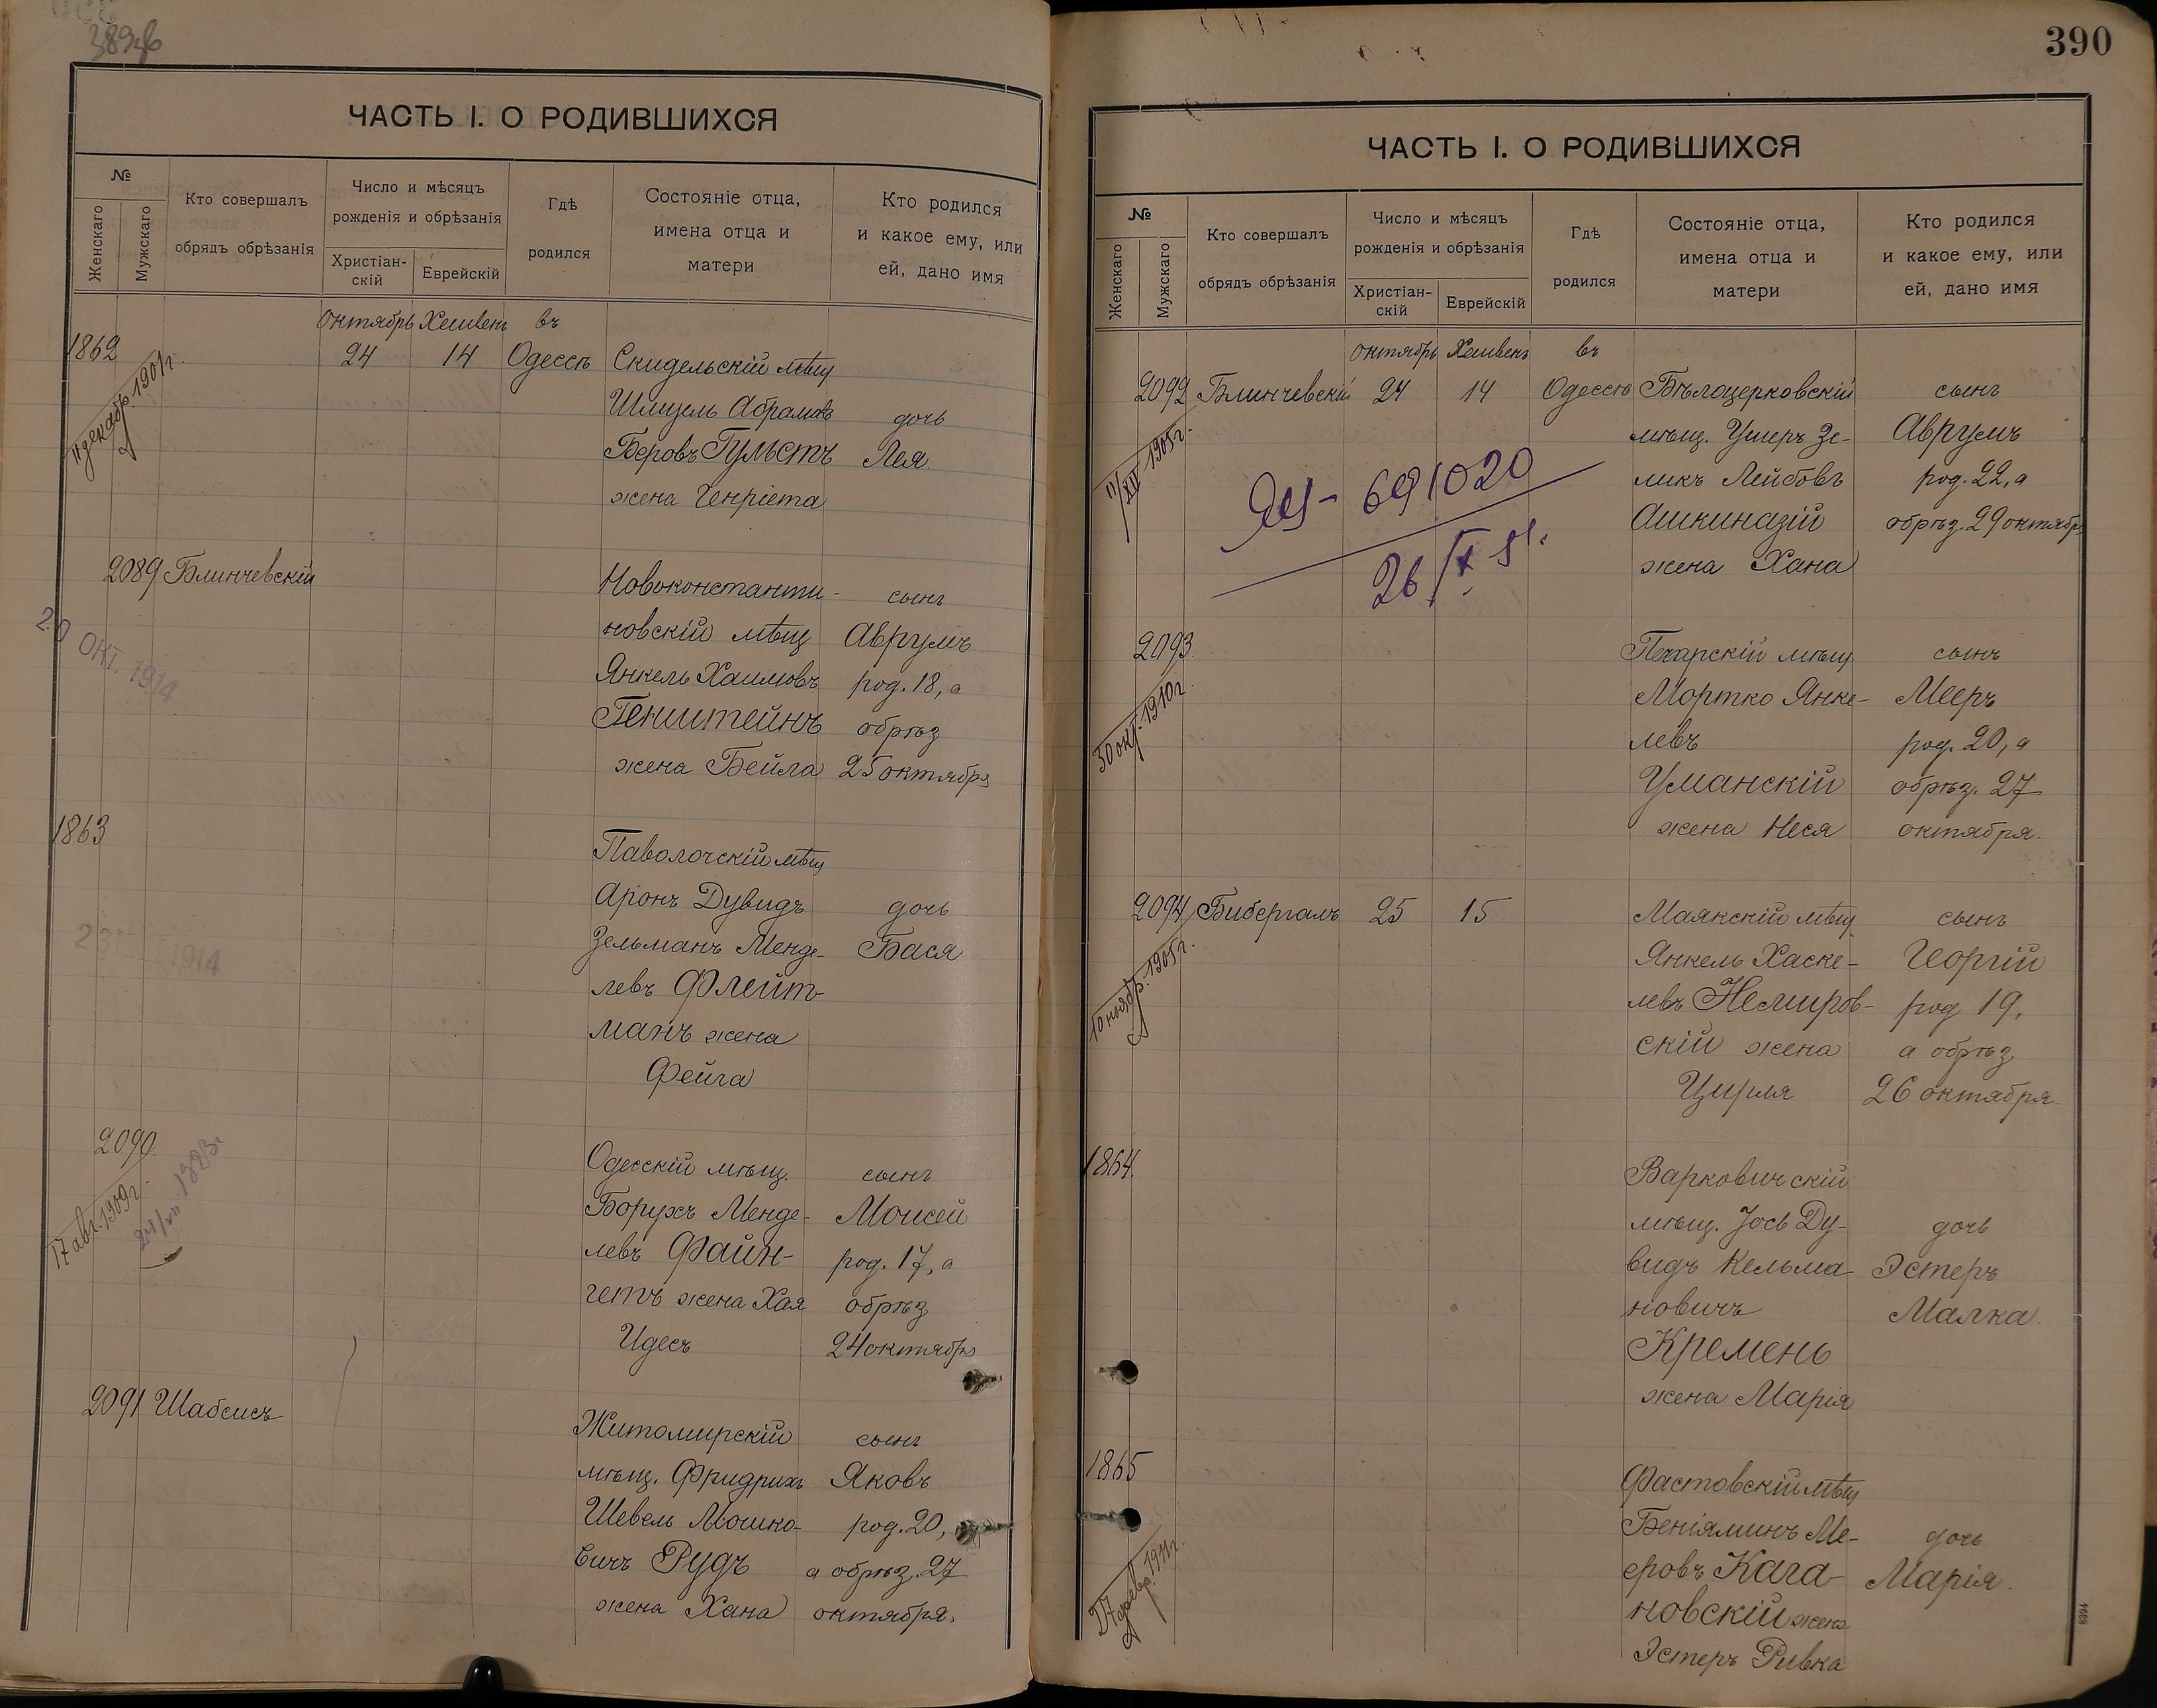 389об
ЧАСТЬ I. О РОДИВШИХСЯ
№
Женскаго
Мужскаго
Кто совершалъ
обрядъ обрѣзанія
Число и мѣсяцъ
рожденія и обрѣзанія
Христіан-
скій
Еврейскій
Гдѣ
родился
Состояніе отца,
имена отца и
матери
Кто родился
и какое ему, или
ей, дано имя
Октябрь Хешвенъ въ
1862 24 14 Одессѣ Скидельскій мѣщ
11 декабр. 1901 г.
Шмуель Абрамовъ дочь
Беровъ Гульстъ Лея.
жена Генріета
2089 Блинчевскій Новоконстанти- сынъ
новскій мѣщ Аврумъ
20 ОКТ. 1914
Янкель Хаимовъ род. 18, а
Генштейнъ обрѣз
жена Бейла 25 октября
1863 Паволочскій мѣщ
Аронъ Дувидъ дочь
Зельманъ Менде- Бася
1914
левъ Флейт-
манъ жена
Фейга
2090. Одесскій мѣщ. сынъ
17 авг. 1909 г.
Борухъ Менде- Моисей
левъ Файн- род. 17, а
гетъ жена Хая обрѣз
Идесъ 24 октября
2091 Шабсисъ Житомирскій сынъ
мѣщ. Фридрихъ Яковъ
Шевель Мошко- род. 20,
вичъ Рудъ а обрѣз. 27
жена Хана октября.
390
ЧАСТЬ I. О РОДИВШИХСЯ
№
Женскаго
Мужскаго
Кто совершалъ
обрядъ обрѣзанія
Число и мѣсяцъ
рожденія и обрѣзанія
Христіан-
скій
Еврейскій
Гдѣ
родился
Состояніе отца,
имена отца и
матери
Кто родился
и какое ему, или
ей, дано имя
Октябрь Хешвенъ въ
2092 Блинчевскій 24 14 Одессѣ Бѣлоцерковскій сынъ
11/XII 1905 г.
мѣщ. Ушеръ Зе- Аврумъ
ликъ Лейбовъ род. 22, а
691020
Ашкиназій обрѣз. 29 октября
жена Хана
26/X 51.
2093. Печарскій мѣщ сынъ
30 окт. 1910 г.
Мортко Янке- Мееръ
левъ род. 20, а
Уманскій обрѣз. 27
жена Неся октября.
2094 Бибергалъ 25 15 Маякскій мѣщ сынъ
10 ноябр. 1905 г.
Янкель Хаске- Георгій
левъ Немиров- род 19,
скій жена а обрѣз
Цирля 26 октября.
1864. Варковичскій
мѣщ. Іось Ду- дочь
видъ Кельма- Эстеръ
новичъ Малка.
Кремень
жена Марія
1865 Фастовскій мѣщ
Беніяминъ Ме- дочь
еровъ Кага- Марія.
новскій жена
Эстеръ Ривка